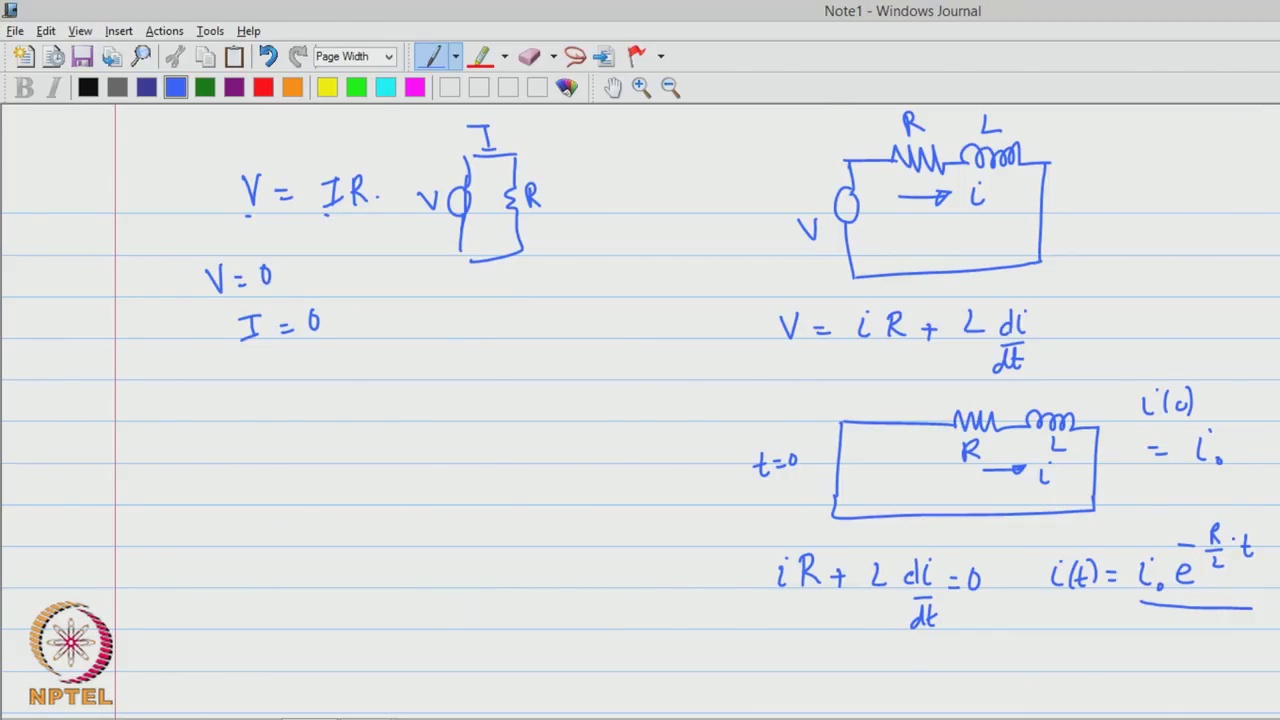 Note1 - Windows Journal
File Edit View Insert Actions Tools Help
Page Width
B I
I
V = IR.
V
R
V = 0
I = 0
R L
i
V
V = iR + L di/dt
t=0
R L
i
i(0)
= i₀
iR + L di/dt = 0
i(t) = i₀ e^(-R/L · t)
NPTEL